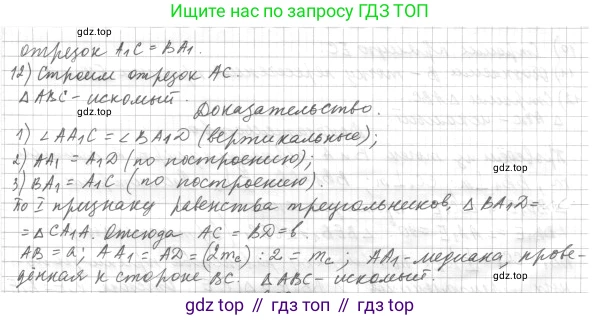 Ищите нас по запросу ГДЗ ТОП
отрезок A₁C = BA₁.
12) Строим отрезок AC.
△ABC - искомый.
Доказательство.
1) ∠AA₁C = ∠BA₁D (вертикальные);
2) AA₁ = A₁D (по построению);
3) BA₁ = A₁C (по построению).
По I признаку равенства треугольников, △BA₁D =
= △CA₁A. Отсюда AC = BD = b.
AB = a; AA₁ = AD = (2m_c) : 2 = m_c; AA₁ - медиана, прове-
дённая к стороне BC. △ABC - искомый.
gdz top // гдз топ // gdz top // гдз топ // gdz top